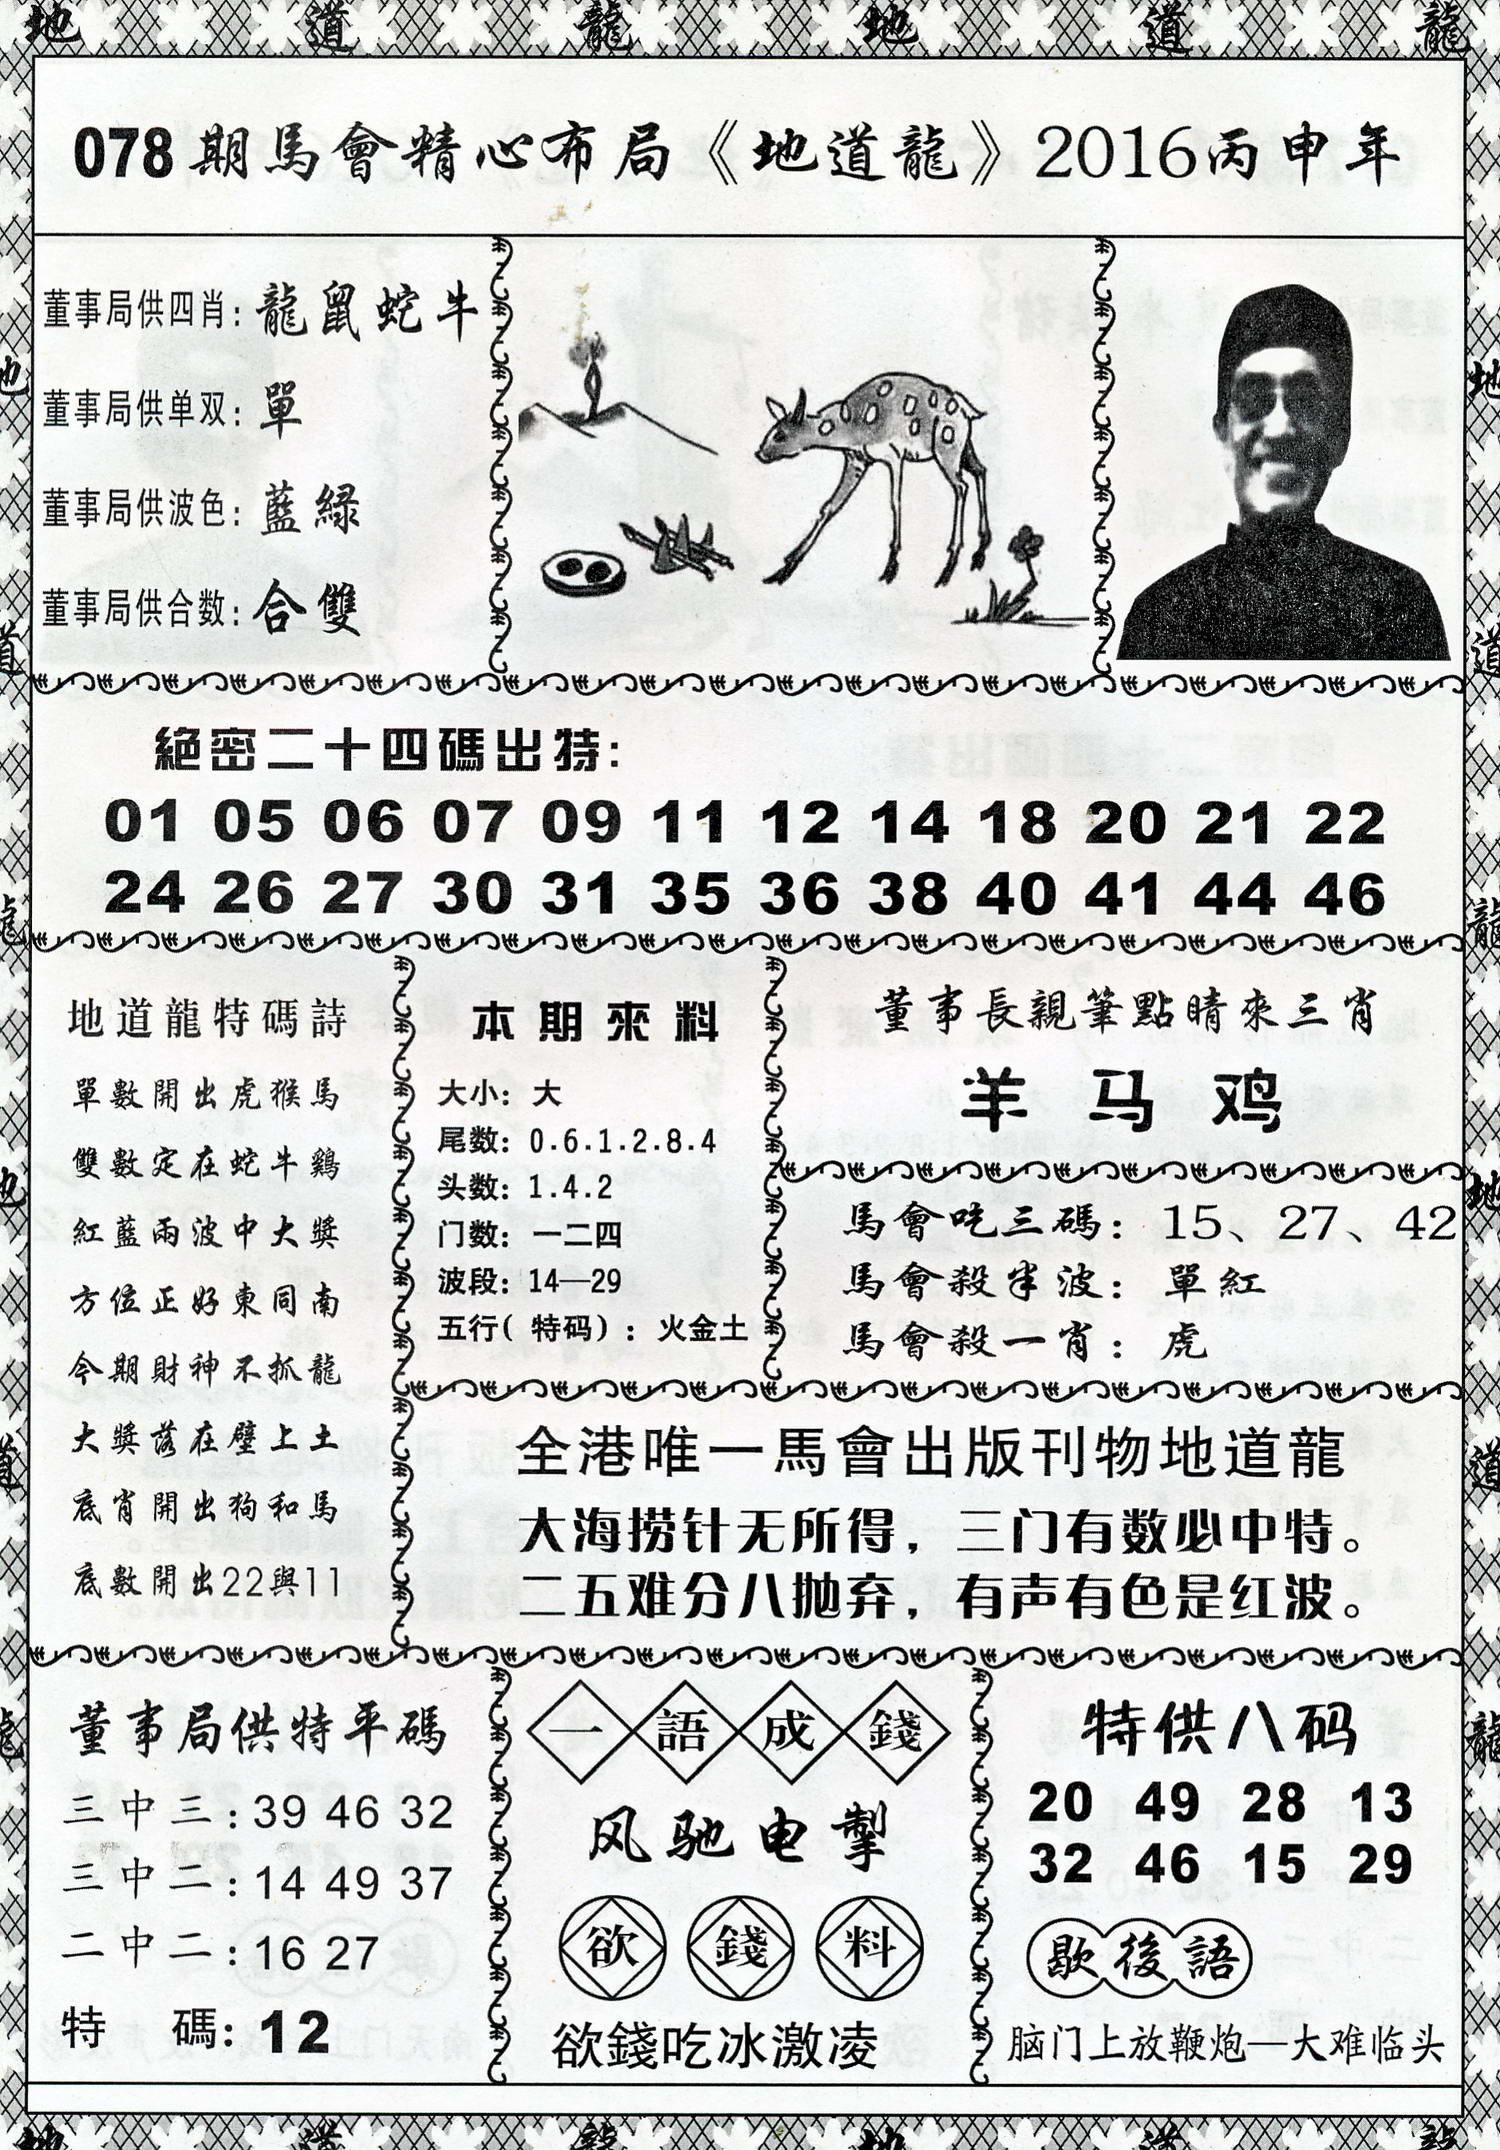 078期馬會精心布局《地道龍》2016丙申年
董事局供四肖：龍鼠蛇牛
董事局供单双：單
董事局供波色：藍緑
董事局供合数：合雙
絕密二十四碼出特：
01 05 06 07 09 11 12 14 18 20 21 22
24 26 27 30 31 35 36 38 40 41 44 46
地道龍特碼詩
單數開出虎猴馬
雙數定在蛇牛鷄
紅藍兩波中大獎
方位正好東同南
今期財神不抓龍
大獎落在壁上土
底肖開出狗和馬
底數開出22與11
本期來料
大小：大
尾数：0.6.1.2.8.4
头数：1.4.2
门数：一二四
波段：14—29
五行(特码)：火金土
董事長親筆點睛來三肖
羊马鸡
馬會吃三碼：15、27、42
馬會殺半波：單紅
馬會殺一肖：虎
全港唯一馬會出版刊物地道龍
大海捞针无所得，三门有数必中特。
二五难分八抛弃，有声有色是红波。
董事局供特平碼
三中三：39 46 32
三中二：14 49 37
二中二：16 27
特碼：12
一語成錢
风驰电掣
欲錢料
欲錢吃冰激凌
特供八码
20 49 28 13
32 46 15 29
歇後語
脑门上放鞭炮—大难临头
地道龍地道龍
地道龍地道龍
地道龍地道龍
地道龍地道龍